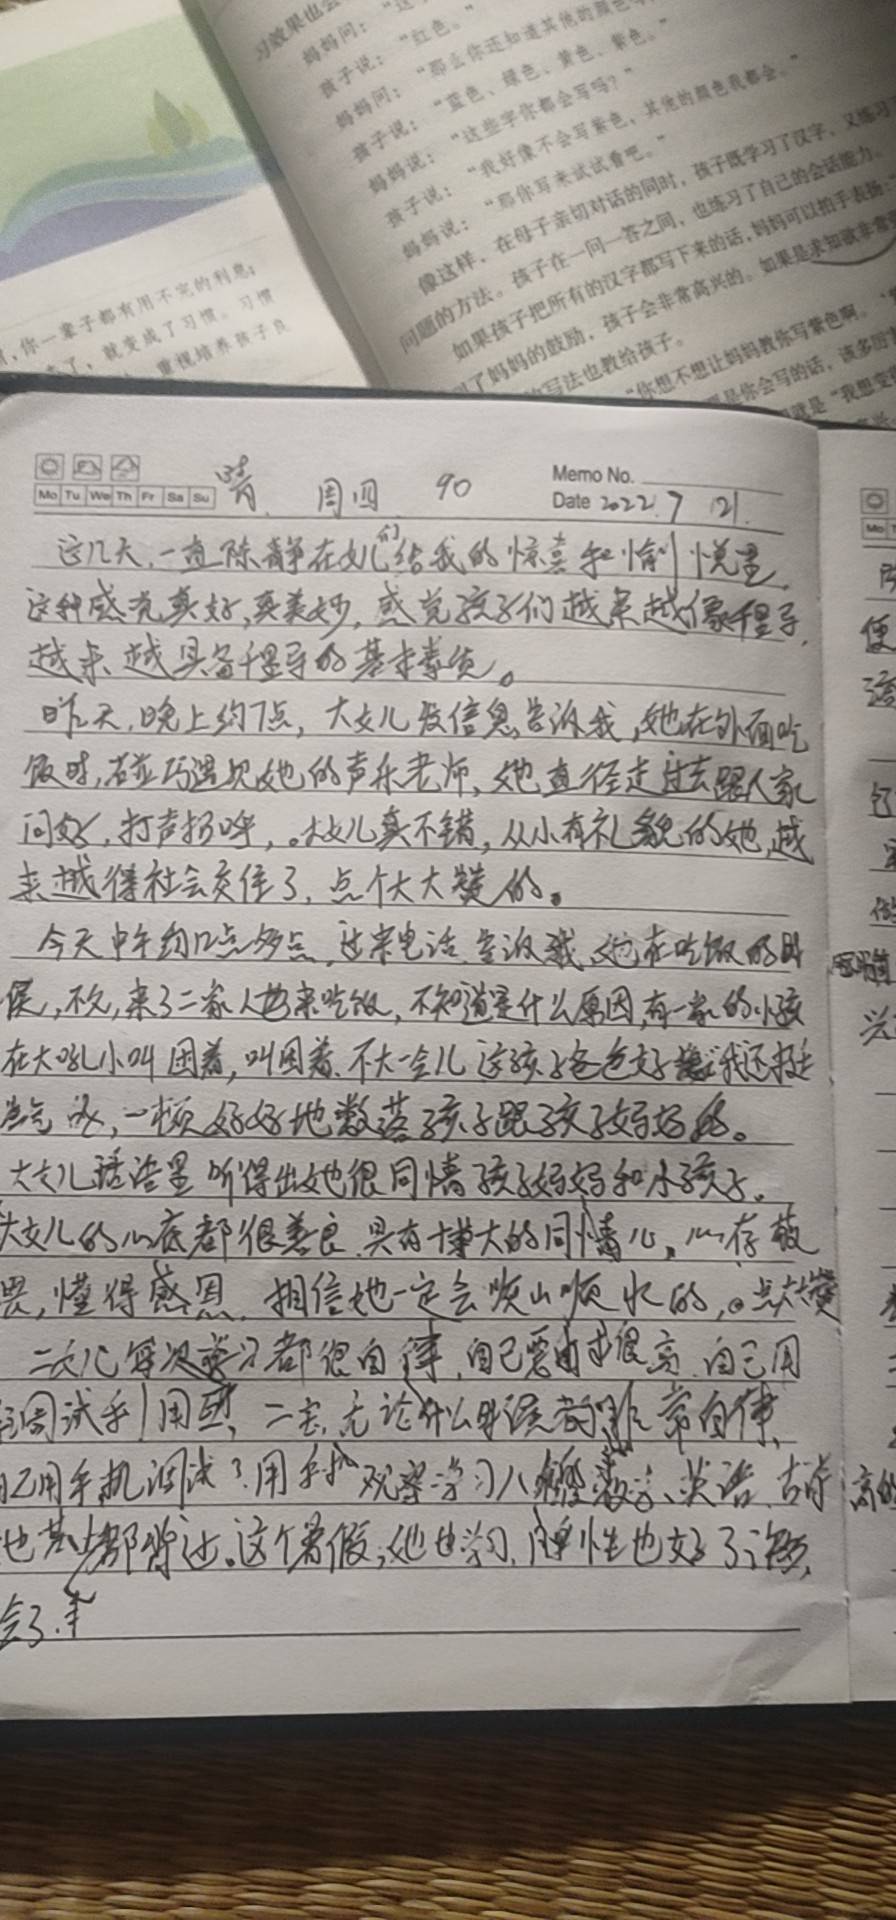 习效果也会
妈妈问：“这
孩子说：“红色。”
妈妈问：“那么你还知道其他的颜色
孩子说：“蓝色、绿色、黄色、紫色。”
妈妈说：“这些字你都会写吗？”
孩子说：“我好像不会写紫色，其他的颜色我都会。”
妈妈说：“那你写来试试看吧。”
像这样，在母子亲切对话的同时，孩子既学习了汉字，又练习
问题的方法。孩子在一问一答之间，也练习了自己的会话能力。
如果孩子把所有的汉字都写下来的话，妈妈可以拍手表扬
了妈妈的鼓励，孩子会非常高兴的。如果是求知欲非常
写法也教给孩子。
“你想不想让妈妈教你写紫色啊。”
是你会写的话，该多
就是“我想
，你一辈子都有用不完的利息；
了，就变成了习惯。习惯
重视培养孩子良
Mo Tu We Th Fr Sa Su
晴 周四 90
Memo No.
Date 2022.7 21.
这几天，一直陈静在女儿们给我的惊喜和愉悦里，
这种感觉真好，真美妙，感觉孩子们越来越像领导，
越来越具备领导的基本素质。
昨天，晚上约7点，大女儿发信息告诉我，她在外面吃
饭时，碰巧遇见她的声乐老师，她直径走过去跟人家
问好，打声招呼，。大女儿真不错，从小有礼貌的她，越
来越得社会交往了，点个大大赞的。
今天中午约12点多点，过来电话，告诉我，她在吃饭的时
候，不久，来了二家人也来吃饭，不知道是什么原因，有一家的小孩
在大吼小叫困着，叫困着，不大一会儿这孩子爸爸
，一顿好好地数落孩子跟孩子妈妈
大女儿话语里听得出她很同情孩子妈妈和小孩子。
大女儿的心底都很善良，具有博大的同情心，心存敬
畏，懂得感恩，相信她一定会顺山顺水的，点大赞
二女儿每次学习都很自律，自己要求很高，自己用
二宝，无论什么时候都非常自律，
用手机调试？用手机观察学习八、数学、英语、古诗
也基本都背过。这个暑假，她也学习，弹性也好
会了.